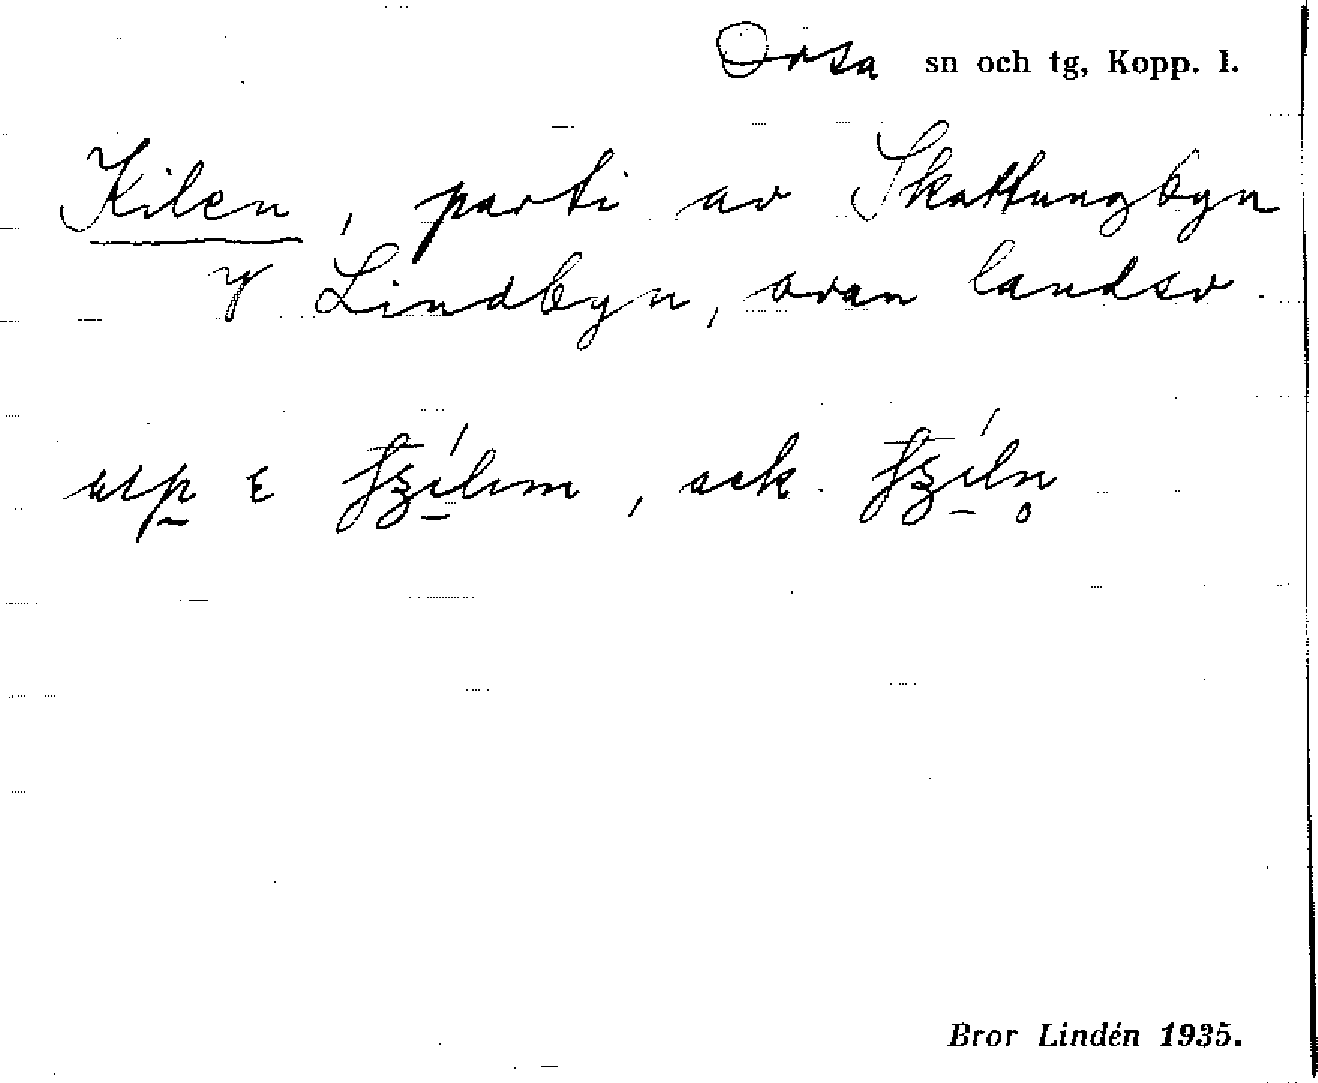 Orsa sn och tg, Kopp. l.
Kilen, parti av Skattungbyn
Lindbyn, ovan landsv.
ack.
Bror Lindén 1935.